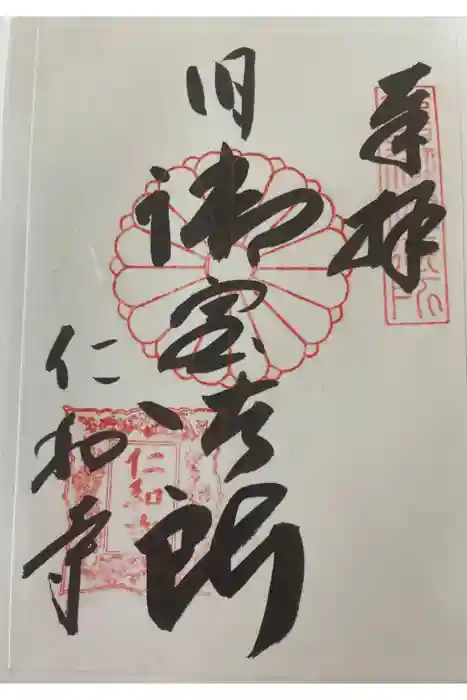 奉拝
旧御室御所
仁和寺
仁和